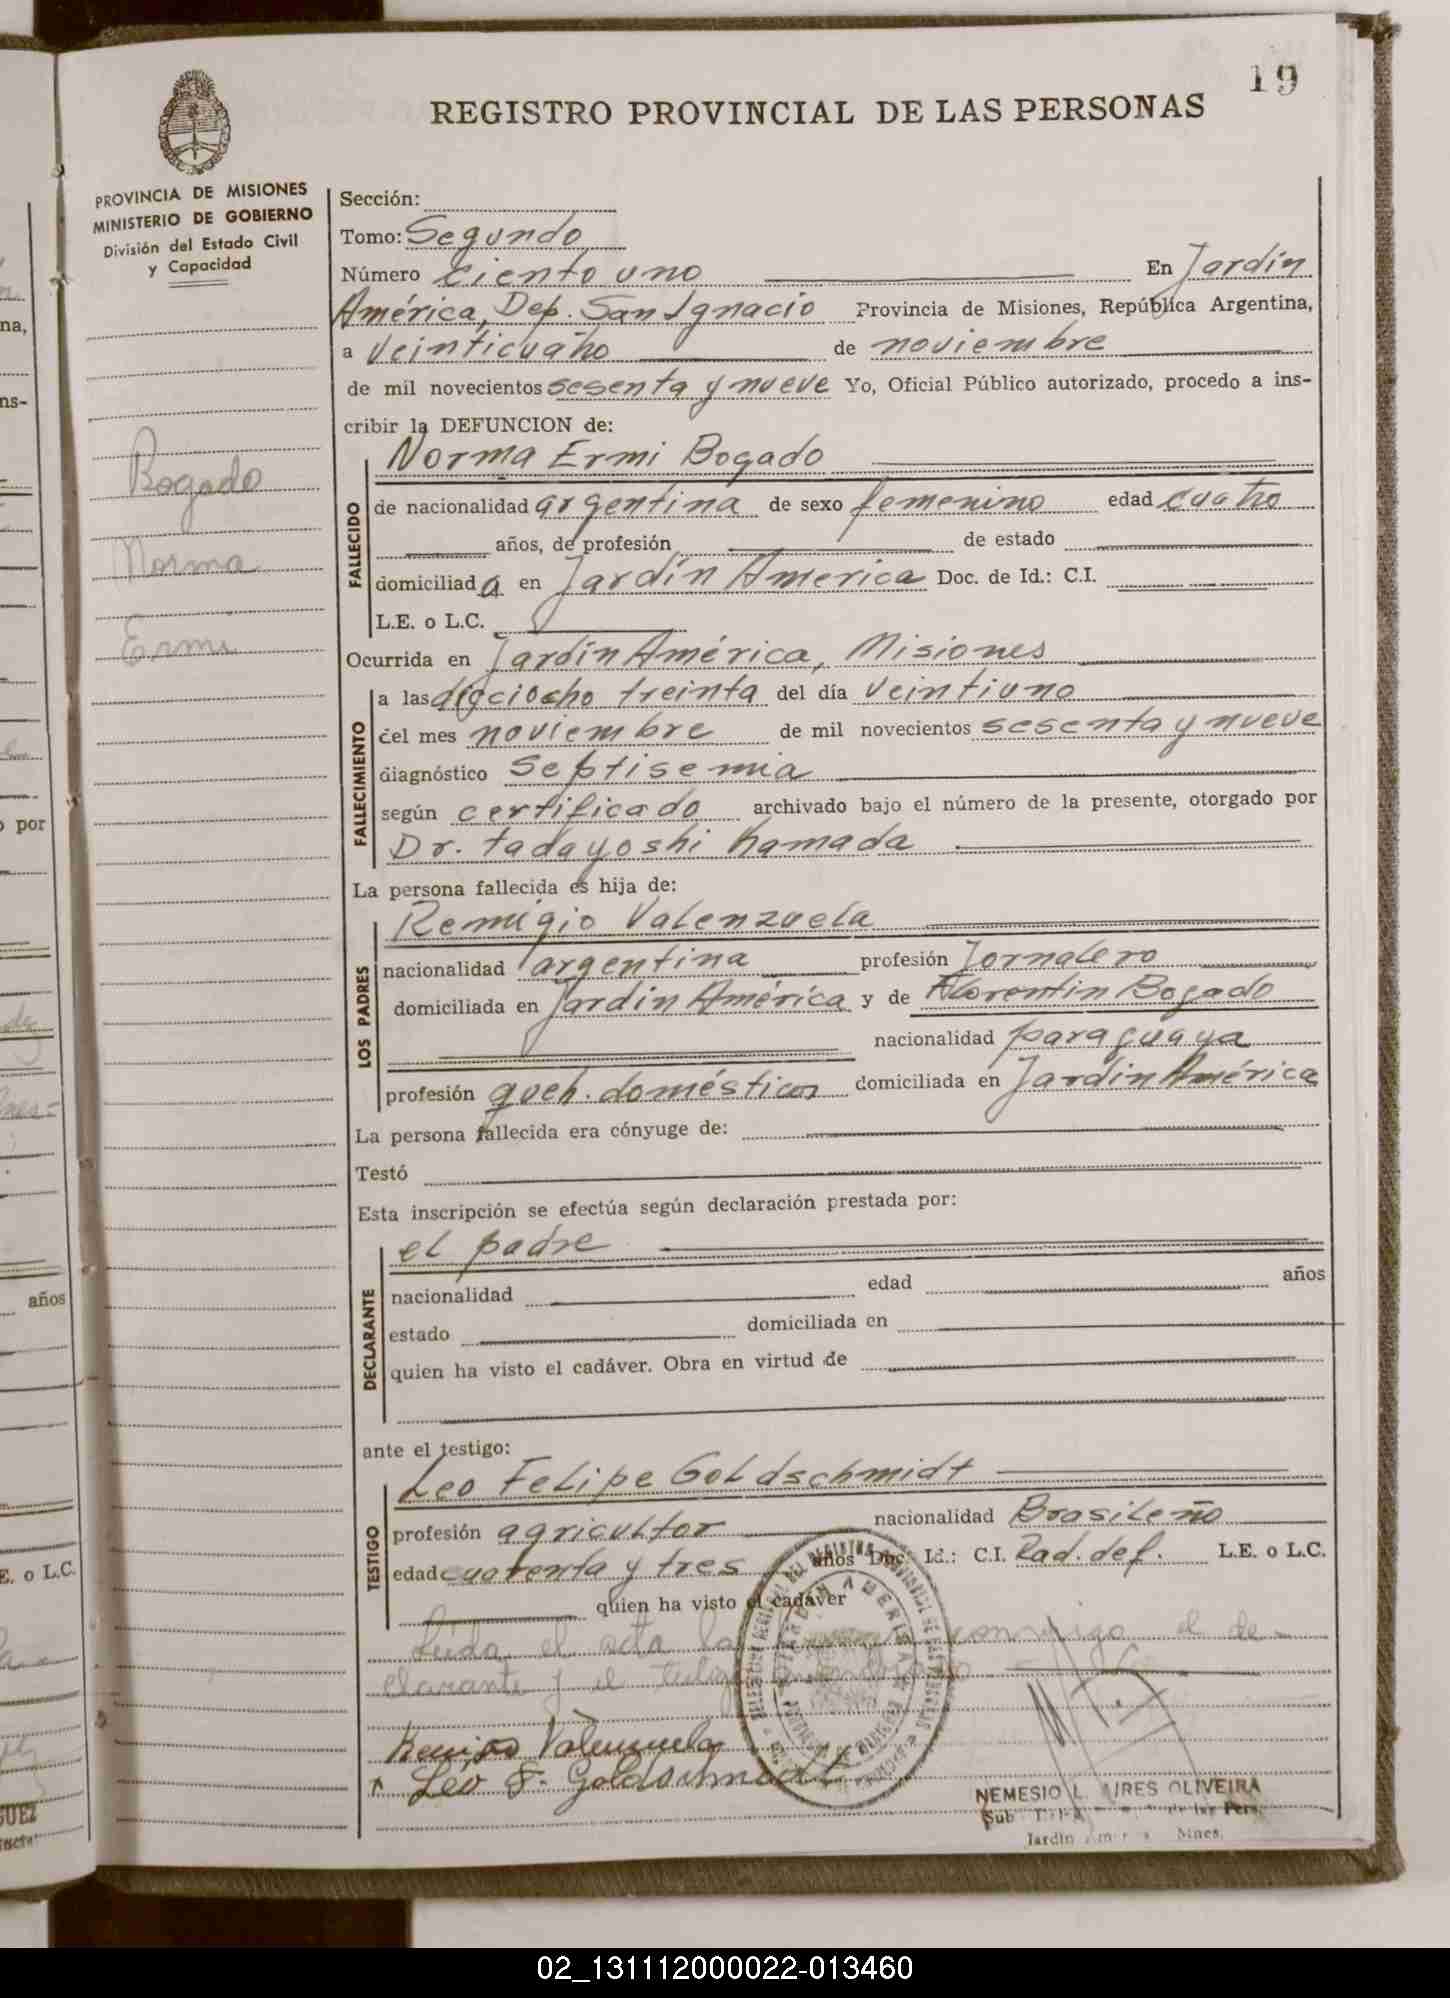 19
REGISTRO PROVINCIAL DE LAS PERSONAS
PROVINCIA DE MISIONES
MINISTERIO DE GOBIERNO
División del Estado Civil
y Capacidad
Bogado
Norma
Ermi
Sección:
Tomo: Segundo
Número ciento uno En Jardín
América, Dep. San Ignacio Provincia de Misiones, República Argentina,
a veinticuatro de noviembre
de mil novecientos sesenta y nueve Yo, Oficial Público autorizado, procedo a ins-
cribir la DEFUNCION de:
Norma Ermi Bogado
FALLECIDO
de nacionalidad argentina de sexo femenino edad cuatro
años, de profesión de estado
domiciliada en Jardín America Doc. de Id.: C.I.
L.E. o L.C.
Ocurrida en Jardín América, Misiones
FALLECIMIENTO
a las dieciocho treinta del día veintiuno
del mes noviembre de mil novecientos sesenta y nueve
diagnóstico Septisemia
según certificado archivado bajo el número de la presente, otorgado por
Dr. tadayoshi Kamada
La persona fallecida es hija de:
LOS PADRES
Remigio Valenzuela
nacionalidad argentina profesión Jornalero
domiciliada en Jardín América y de Florentin Bogado
nacionalidad paraguaya
profesión queh. domésticos domiciliada en Jardín América
La persona fallecida era cónyuge de:
Testó
Esta inscripción se efectúa según declaración prestada por:
DECLARANTE
el padre
nacionalidad edad años
estado domiciliada en
quien ha visto el cadáver. Obra en virtud de
ante el testigo:
TESTIGO
Leo Felipe Goldschmidt
profesión agricultor nacionalidad Brasileño
edad cuarenta y tres años Doc. Id.: C.I. Rad. def. L.E. o L.C.
quien ha visto el cadáver
Leida el acta la conmigo el de-
clarante y el testigo
Remigio Valenzuela
Leo F. Goldschmidt
JARDIN AMERICA
NEMESIO L. AIRES OLIVEIRA
Sub
Jardín Mnes.
na,
ns-
o por
años
E. o L.C.
GUEZ
02_131112000022-013460